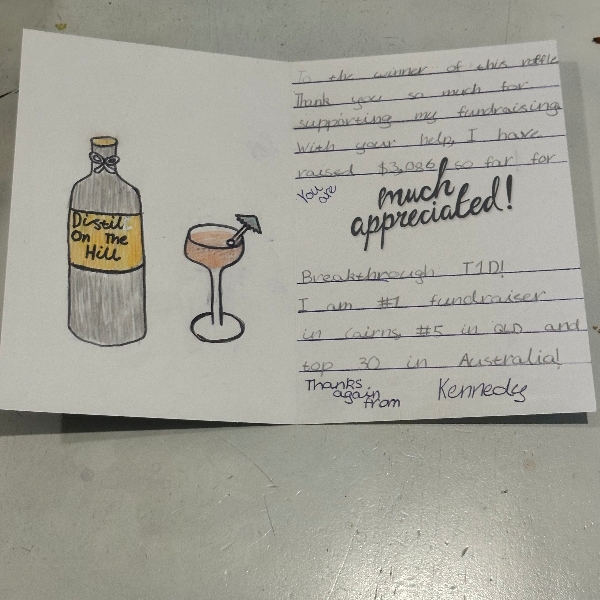 Distil
On The
Hill
To the winner of this raffle
Thank you so much for
supporting my fundraising
With your help, I have
raised $3,086 so far for
You are
much
appreciated!
Breakthrough T1D!
I am #1 fundraiser
in Cairns, #5 in QLD and
top 30 in Australia!
Thanks
again
from
Kennedy